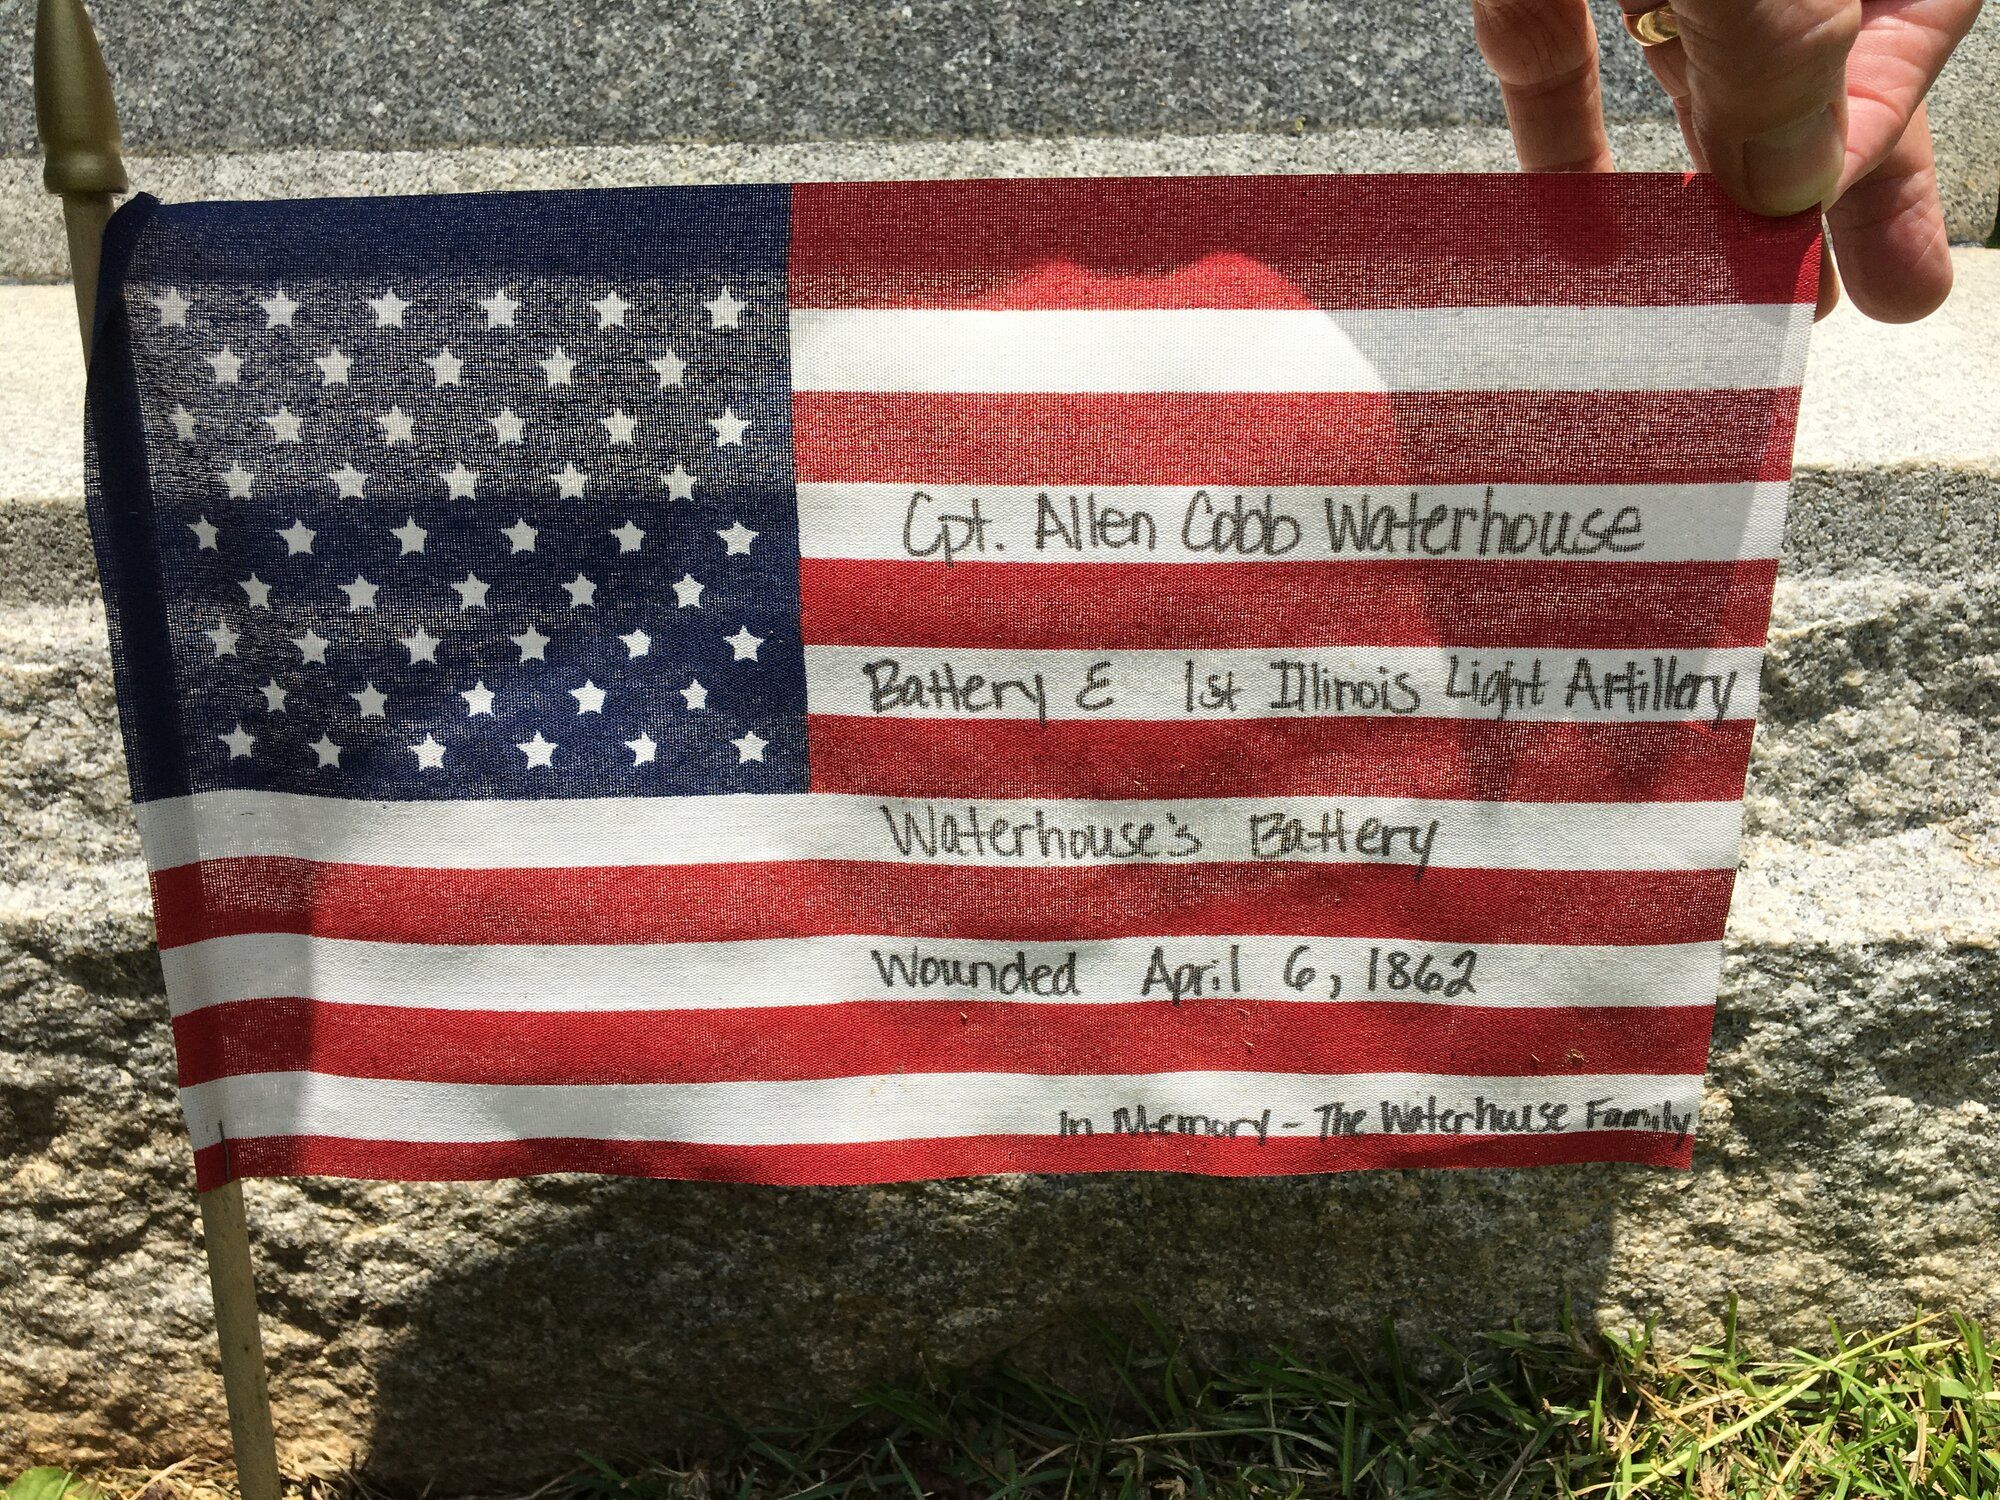 Cpt. Allen Cobb Waterhouse
Battery E 1st Illinois Light Artillery
Waterhouse's Battery
Wounded April 6, 1862
In Memory - The Waterhouse Family